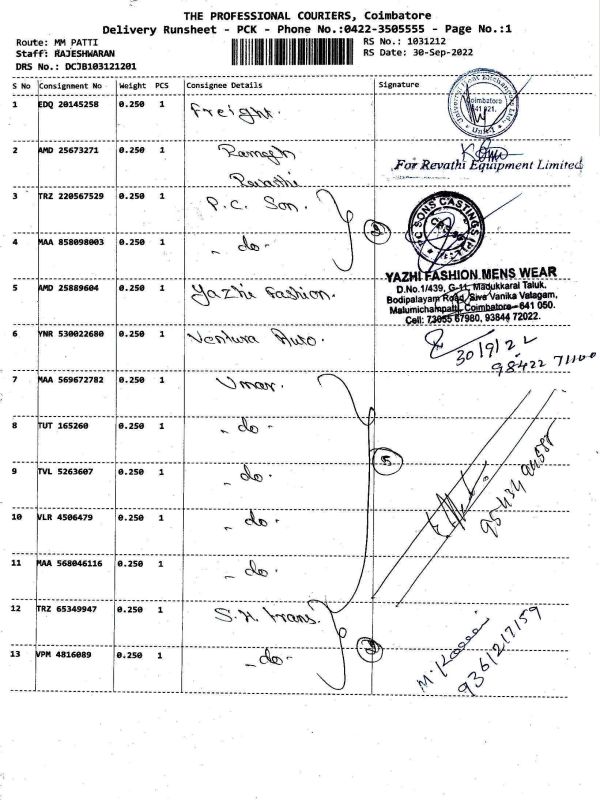 THE PROFESSIONAL COURIERS, Coimbatore
Delivery Runsheet - PCK - Phone No.:0422-3505555 - Page No.:1
Route: MM PATTI RS No.: 1031212
Staff: RAJESHWARAN RS Date: 30-Sep-2022
DRS No.: DCJB103121201
S No Consignment No Weight PCS Consignee Details Signature
1 EDQ 20145258 0.250 1 Freight.
Coimbatore
641 021.
2 AMD 25673271 0.250 1 Ramesh
Revathi
For Revathi Equipment Limited
3 TRZ 220567529 0.250 1 P.C. Son.
2
4 MAA 858098003 0.250 1 - do -
YAZHI FASHION MENS WEAR
D.No.1/439, G-11, Madukkarai Taluk,
Bodipalayam Road, Siva Vanika Valagam,
Malumichampatti, Coimbatore - 641 050.
Cell: 73055 67980, 93844 72022.
5 AMD 25889604 0.250 1 Yazhi Fashion.
6 YNR 530022680 0.250 1 Ventura Auto.
30/9/22
98422 71100
7 MAA 569672782 0.250 1 Umar.
8 TUT 165260 0.250 1 - do -
5
9 TVL 5263607 0.250 1 - do -
10 VLR 4506479 0.250 1 - do -
11 MAA 568046116 0.250 1 - do -
12 TRZ 65349947 0.250 1 S.H. trans.
2
13 VPM 4816089 0.250 1 - do -
9361217159